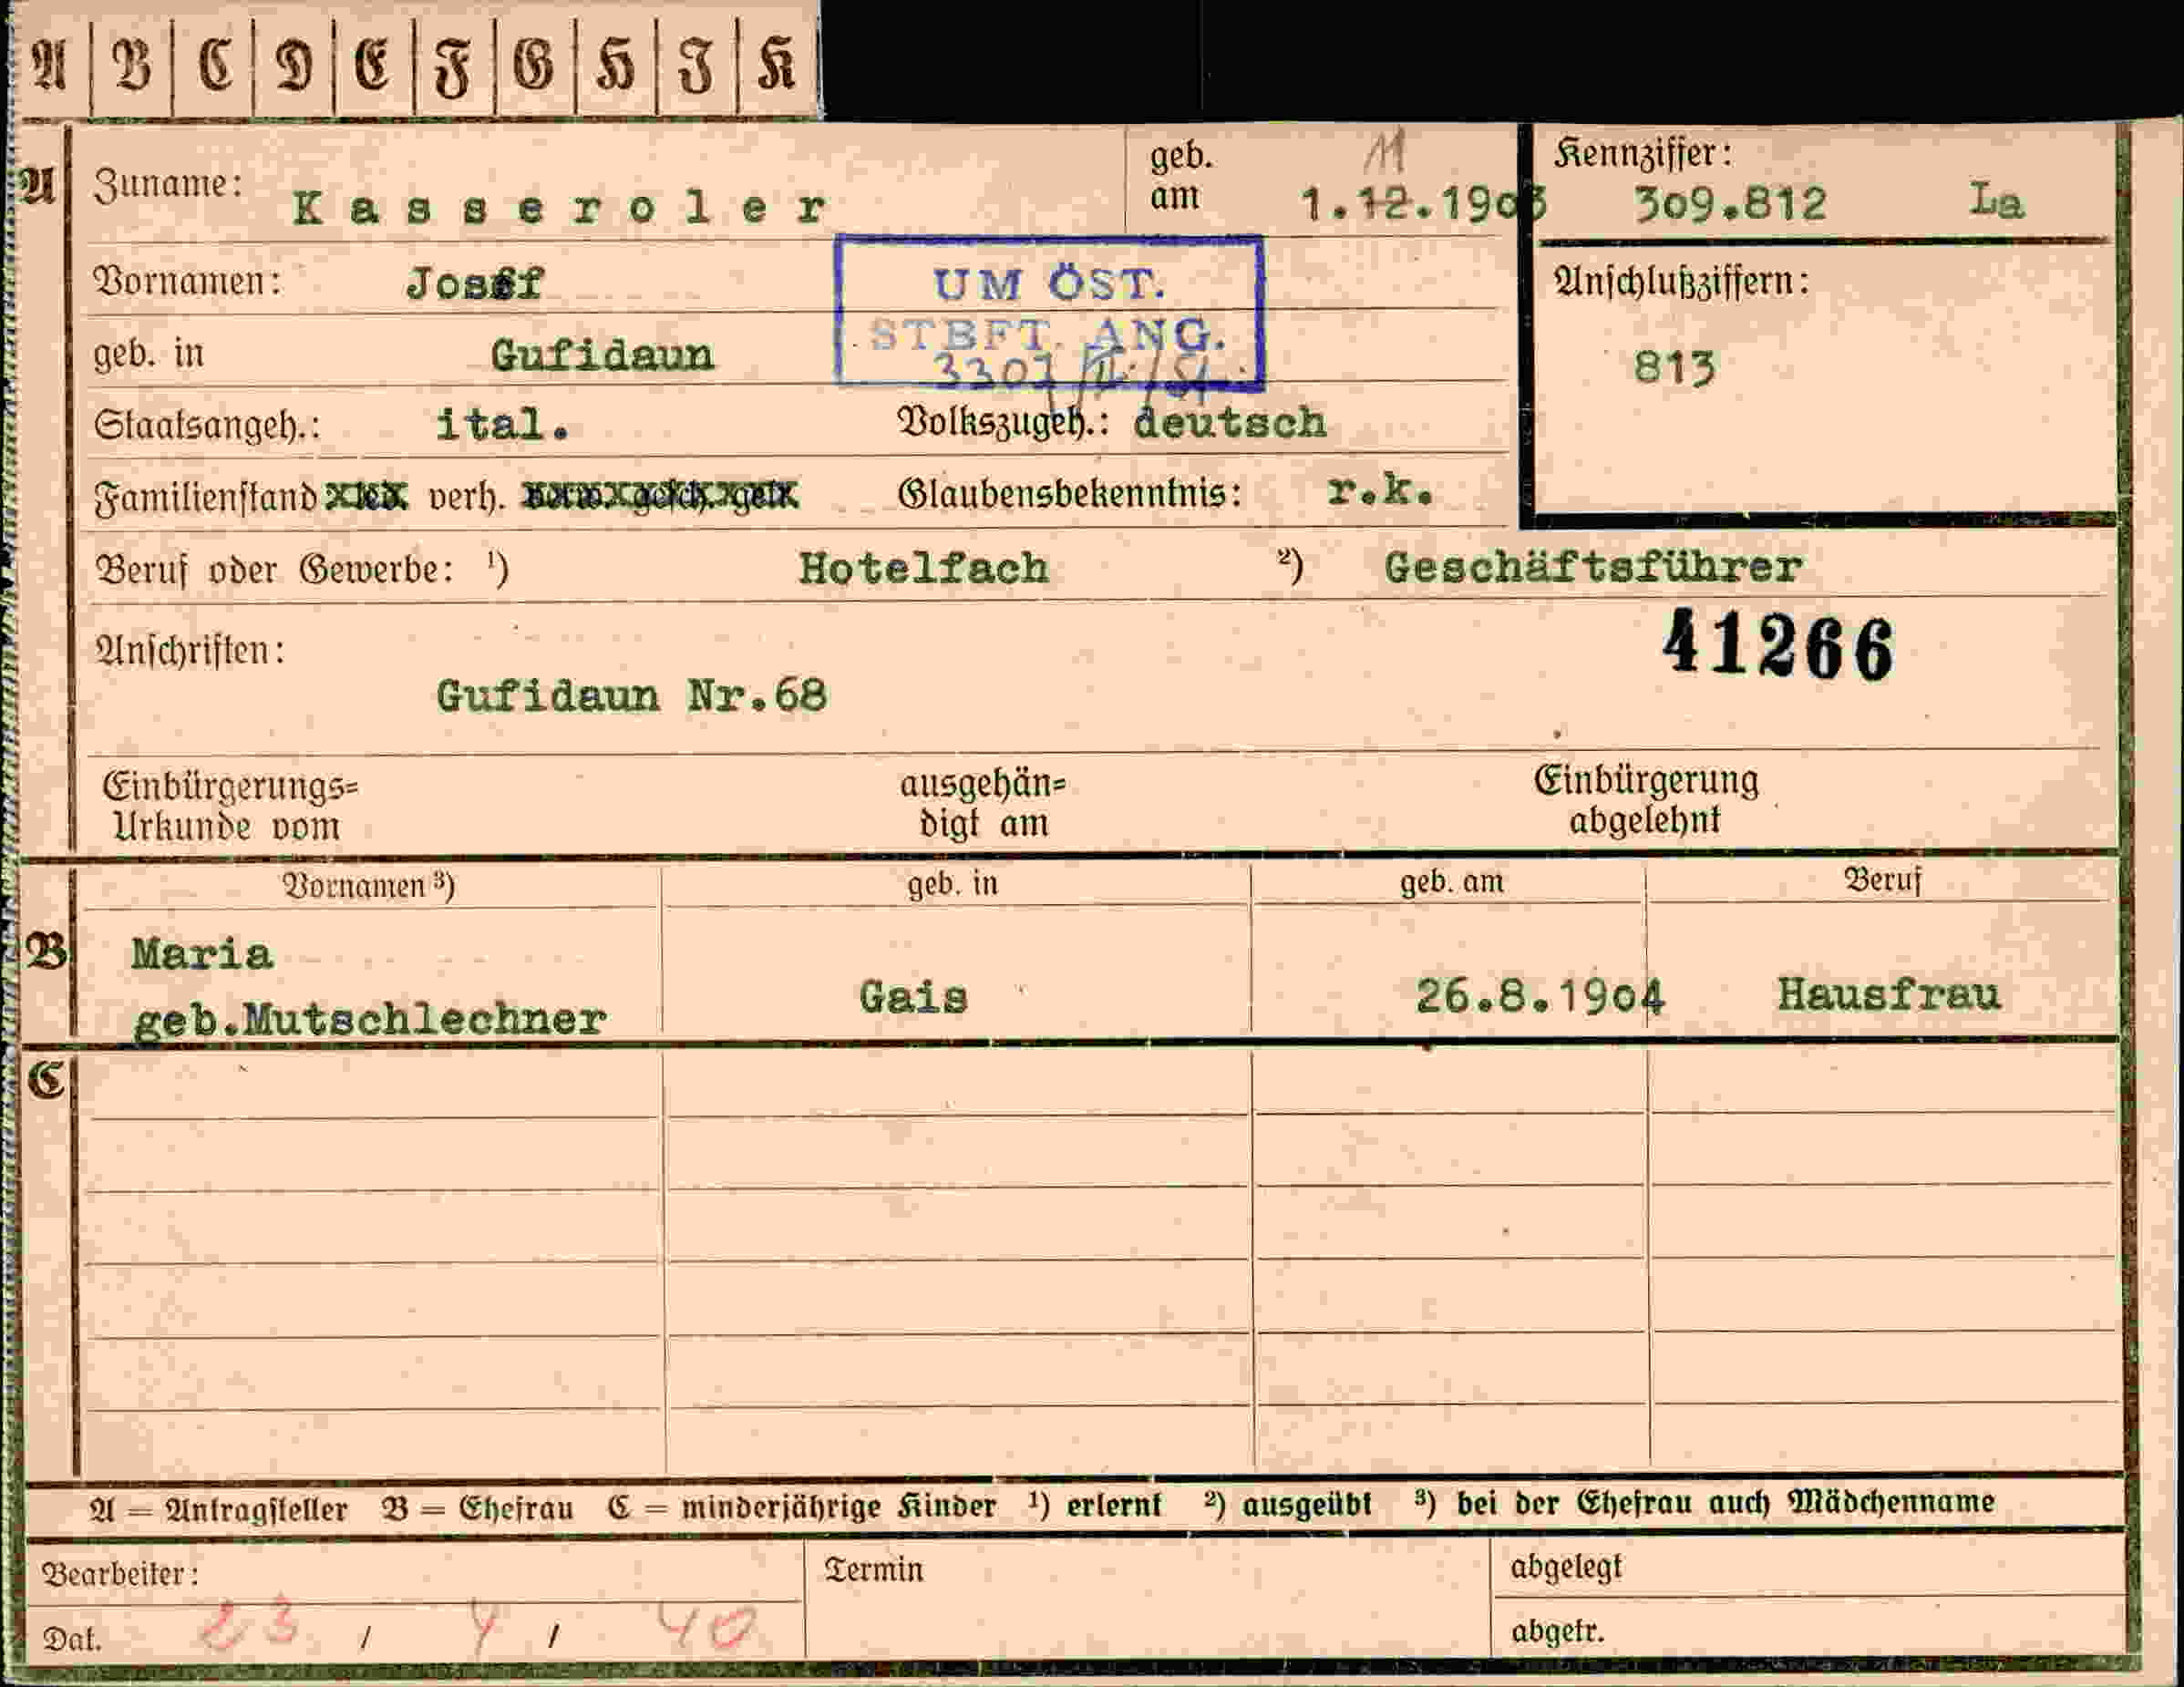 A B C D E F G H I K
A Zuname: Kasseroler geb. am 11 1.12.1903 Kennziffer: 309.812 La
Vornamen: Josef
UM ÖST.
STBFT. ANG.
Anschlußziffern:
813
geb. in Gufidaun
Staatsangeh.: ital. Volkszugeh.: deutsch
Familienstand verh. Glaubensbekenntnis: r.k.
Beruf oder Gewerbe: ¹) Hotelfach ²) Geschäftsführer
41266
Anschriften:
Gufidaun Nr.68
Einbürgerungs= ausgehän= Einbürgerung
Urkunde vom digt am abgelehnt
Vornamen ³) geb. in geb. am Beruf
B Maria
geb.Mutschlechner Gais 26.8.1904 Hausfrau
C
A = Antragsteller B = Ehefrau C = minderjährige Kinder ¹) erlernt ²) ausgeübt ³) bei der Ehefrau auch Mädchenname
Bearbeiter: Termin abgelegt
Dat. 23 / 4 / 40 abgetr.